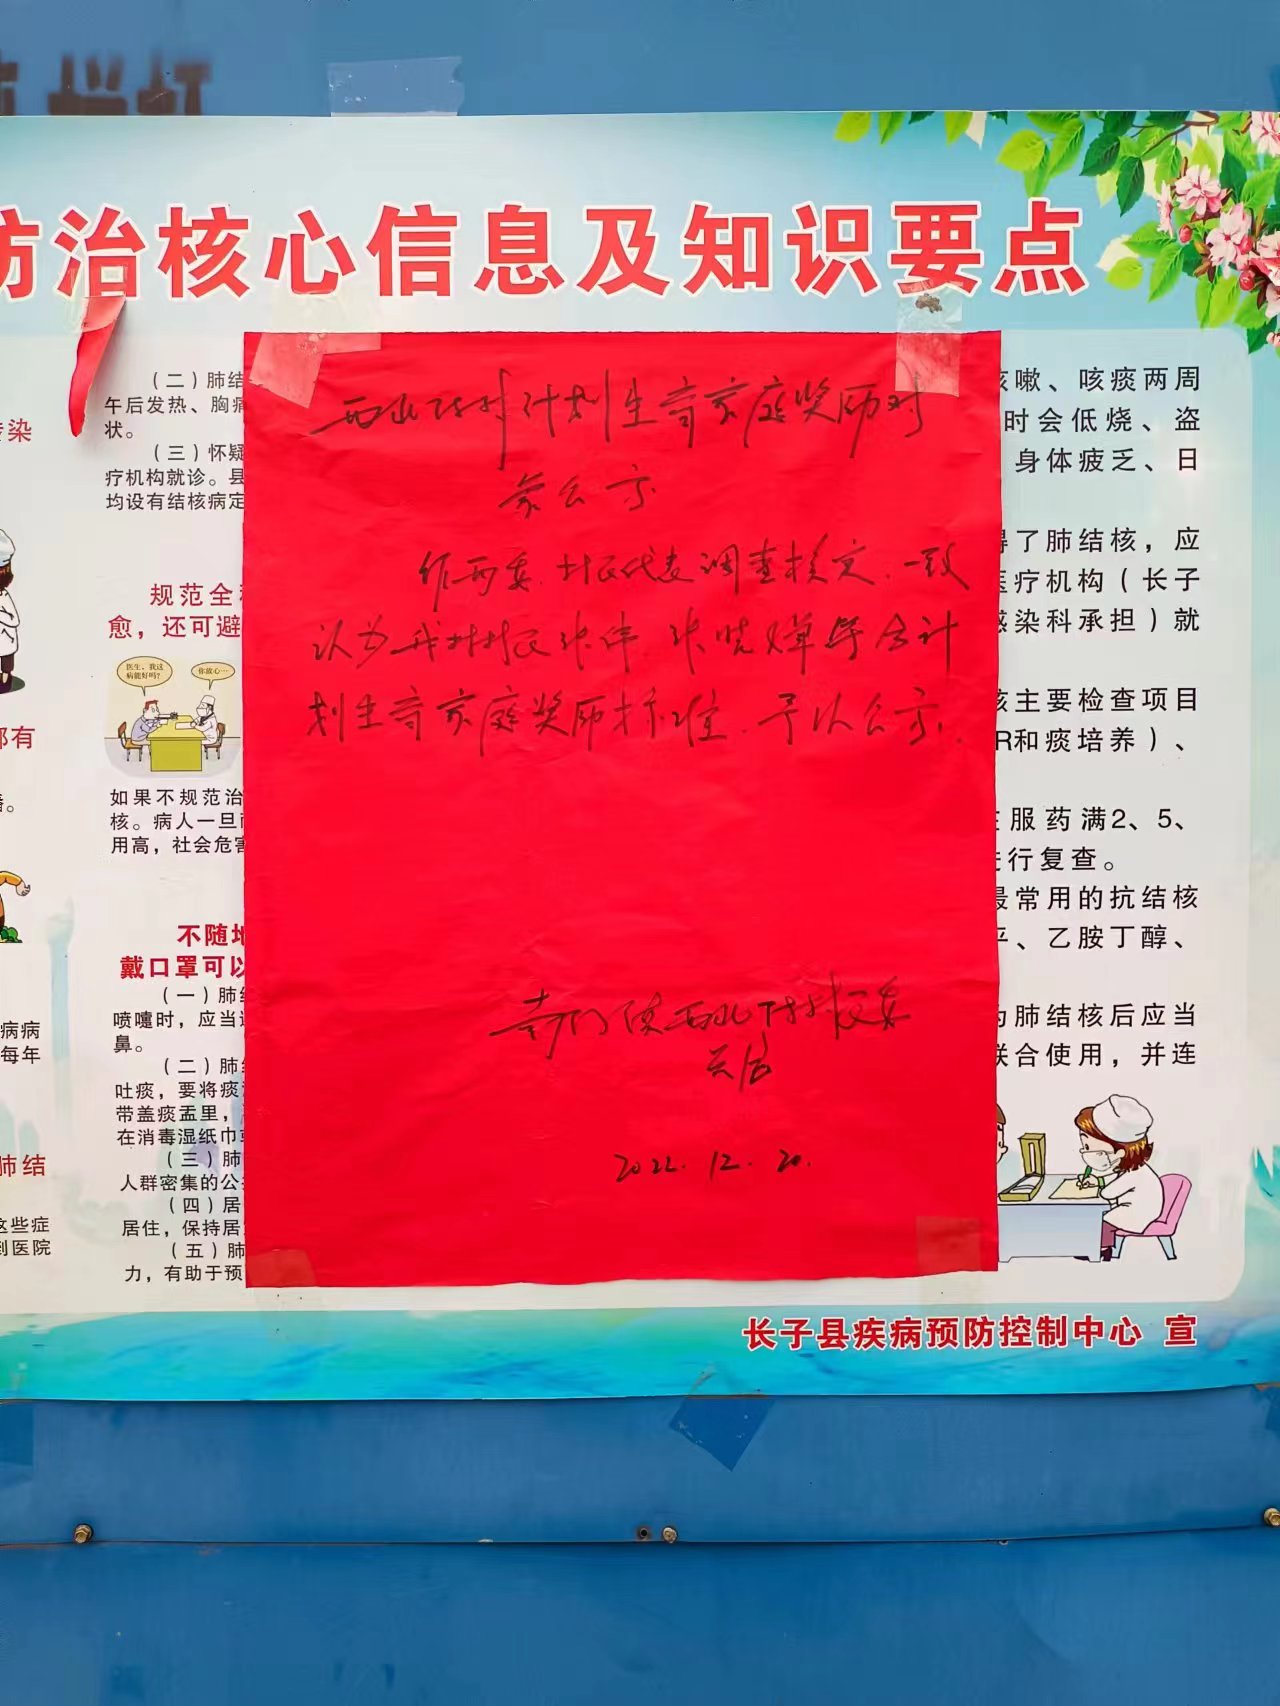 防治核心信息及知识要点
传染
都有
病病
每年
肺结
这些症
到医院
（二）肺结
午后发热、胸痛
状。
（三）怀疑
疗机构就诊。县
均设有结核病定
规范全
愈，还可避
医生，我这
病能好吗？
你放心…
如果不规范治
核。病人一旦
用高，社会危害
不随地
戴口罩可以
（一）肺结
喷嚏时，应当
鼻。
（二）肺
吐痰，要将痰
带盖痰盂里，
在消毒湿纸巾
（三）肺
人群密集的公
（四）居
居住，保持居
（五）肺
力，有助于预
计划生育家庭奖励对
象公示
村民代表调查核定，一致
认为我村村民
合计
划生育家庭奖励标准，予以公示。
2022.12.20.
咳嗽、咳痰两周
时会低烧、盗
身体疲乏、日
得了肺结核，应
医疗机构（长子
感染科承担）就
核主要检查项目
R和痰培养）、
服药满2、5、
进行复查。
最常用的抗结核
平、乙胺丁醇、
为肺结核后应当
联合使用，并连
长子县疾病预防控制中心 宣